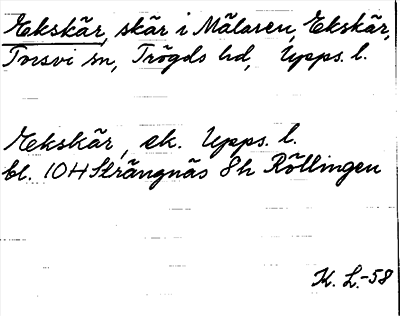 Ekskär, skär i Mälaren, Ekskär,
Torsvi sn, Trögds hd, Upps. l.
Ekskär, ek. Upps. l.
bl. 10H Strängnäs 8h Röllingen
K. L.-58